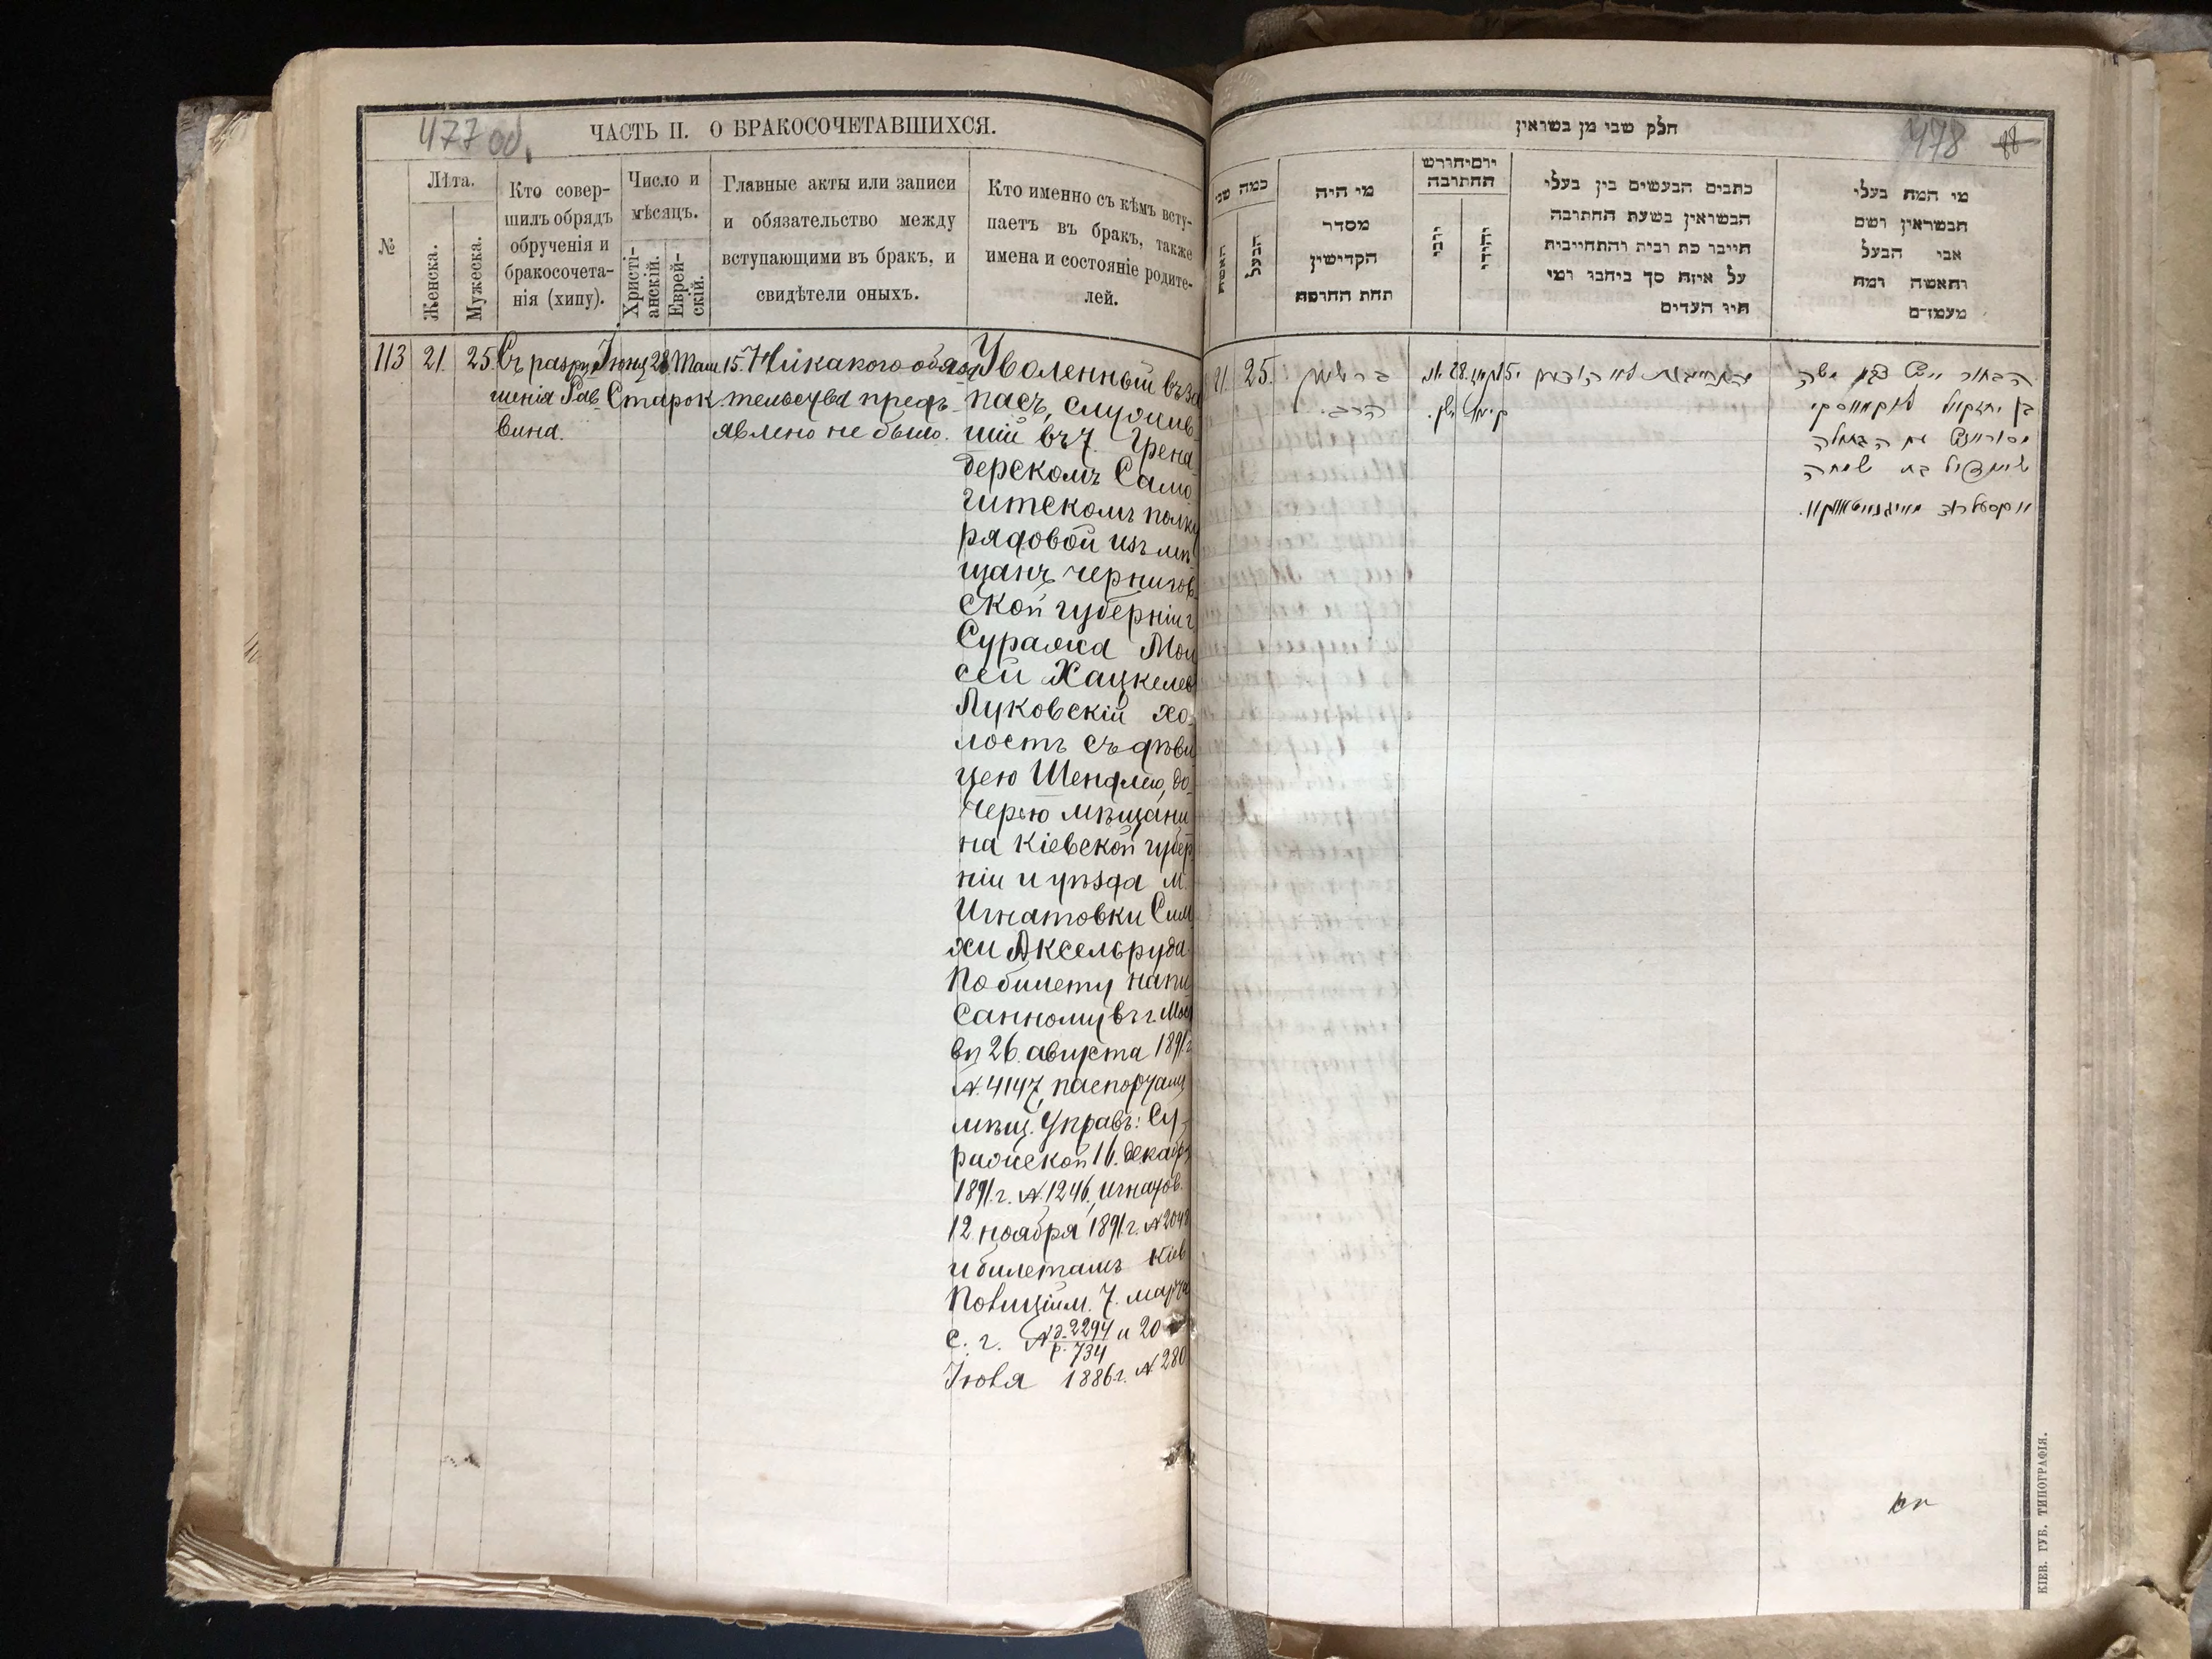 477 об.
ЧАСТЬ II. О БРАКОСОЧЕТАВШИХСЯ.
№
Лѣта.
Женска.
Мужеска.
Кто совер-
шилъ обрядъ
обрученія и
бракосочета-
нія (хипу).
Число и
мѣсяцъ.
Христі-
анскій.
Еврей-
скій.
Главные акты или записи
и обязательство между
вступающими въ бракъ, и
свидѣтели оныхъ.
Кто именно съ кѣмъ всту-
паетъ въ бракъ, также
имена и состояніе родите-
лей.
113
21.
25.
Съ разрѣ
шенія Рав
вина.
Іюнц 28
Старок.
Там 15.
Никакого обяза
тельства предъ
явлено не было.
Уволенный въ за
пасъ, служив
шій въ 7. Грена
дерскомъ Само
гитскомъ полку
рядовой изъ мѣ
щанъ Чернигов
ской губерніи г.
Суража Мои
сей Хацкелев
Луковскій хо
лостъ съ дѣви
цею Шендлею, до
черью мѣщани
на Кіевской губер
ніи и уѣзда м.
Игнатовки Сим
хи Аксельруда.
По билету напи
санному въ г. Моск
вѣ 26. августа 1891 г.
№ 4147, паспортамъ
мѣщ. Управъ: Су
ражской 16. декабр
1891. г. № 1246, Игнатов.
12 ноября 1891. г. № 2048
и билетамъ Кіев
Полиціи м. 7. марта
с. г. № д. 2294 и 20
р. 734
Іюля 1886 г. № 280
478
88
חלק שני מן בשואין
כמה שני
האשה
הבעל
מי היה
מסדר
הקדישין
תחת החופה
יום וחורש
החתובה
יוני
יהודי
כתבים הנעשים בין בעלי
הנשואין בשעת החתובה
חייבו כת ובית והתחייבות
על איזה סך ביחבו ומי
היו העדים
מי המה בעלי
הנשואין ושם
אבי הבעל
והאשה ומה
מעמדם
21.
25.
ברשיון
הרב.
28.
15
הבחור
משה
בן יחזקאל לוקאווסקי
שיינדיל בת שמחה
КІЕВ. ГУБ. ТИПОГРАФІЯ.